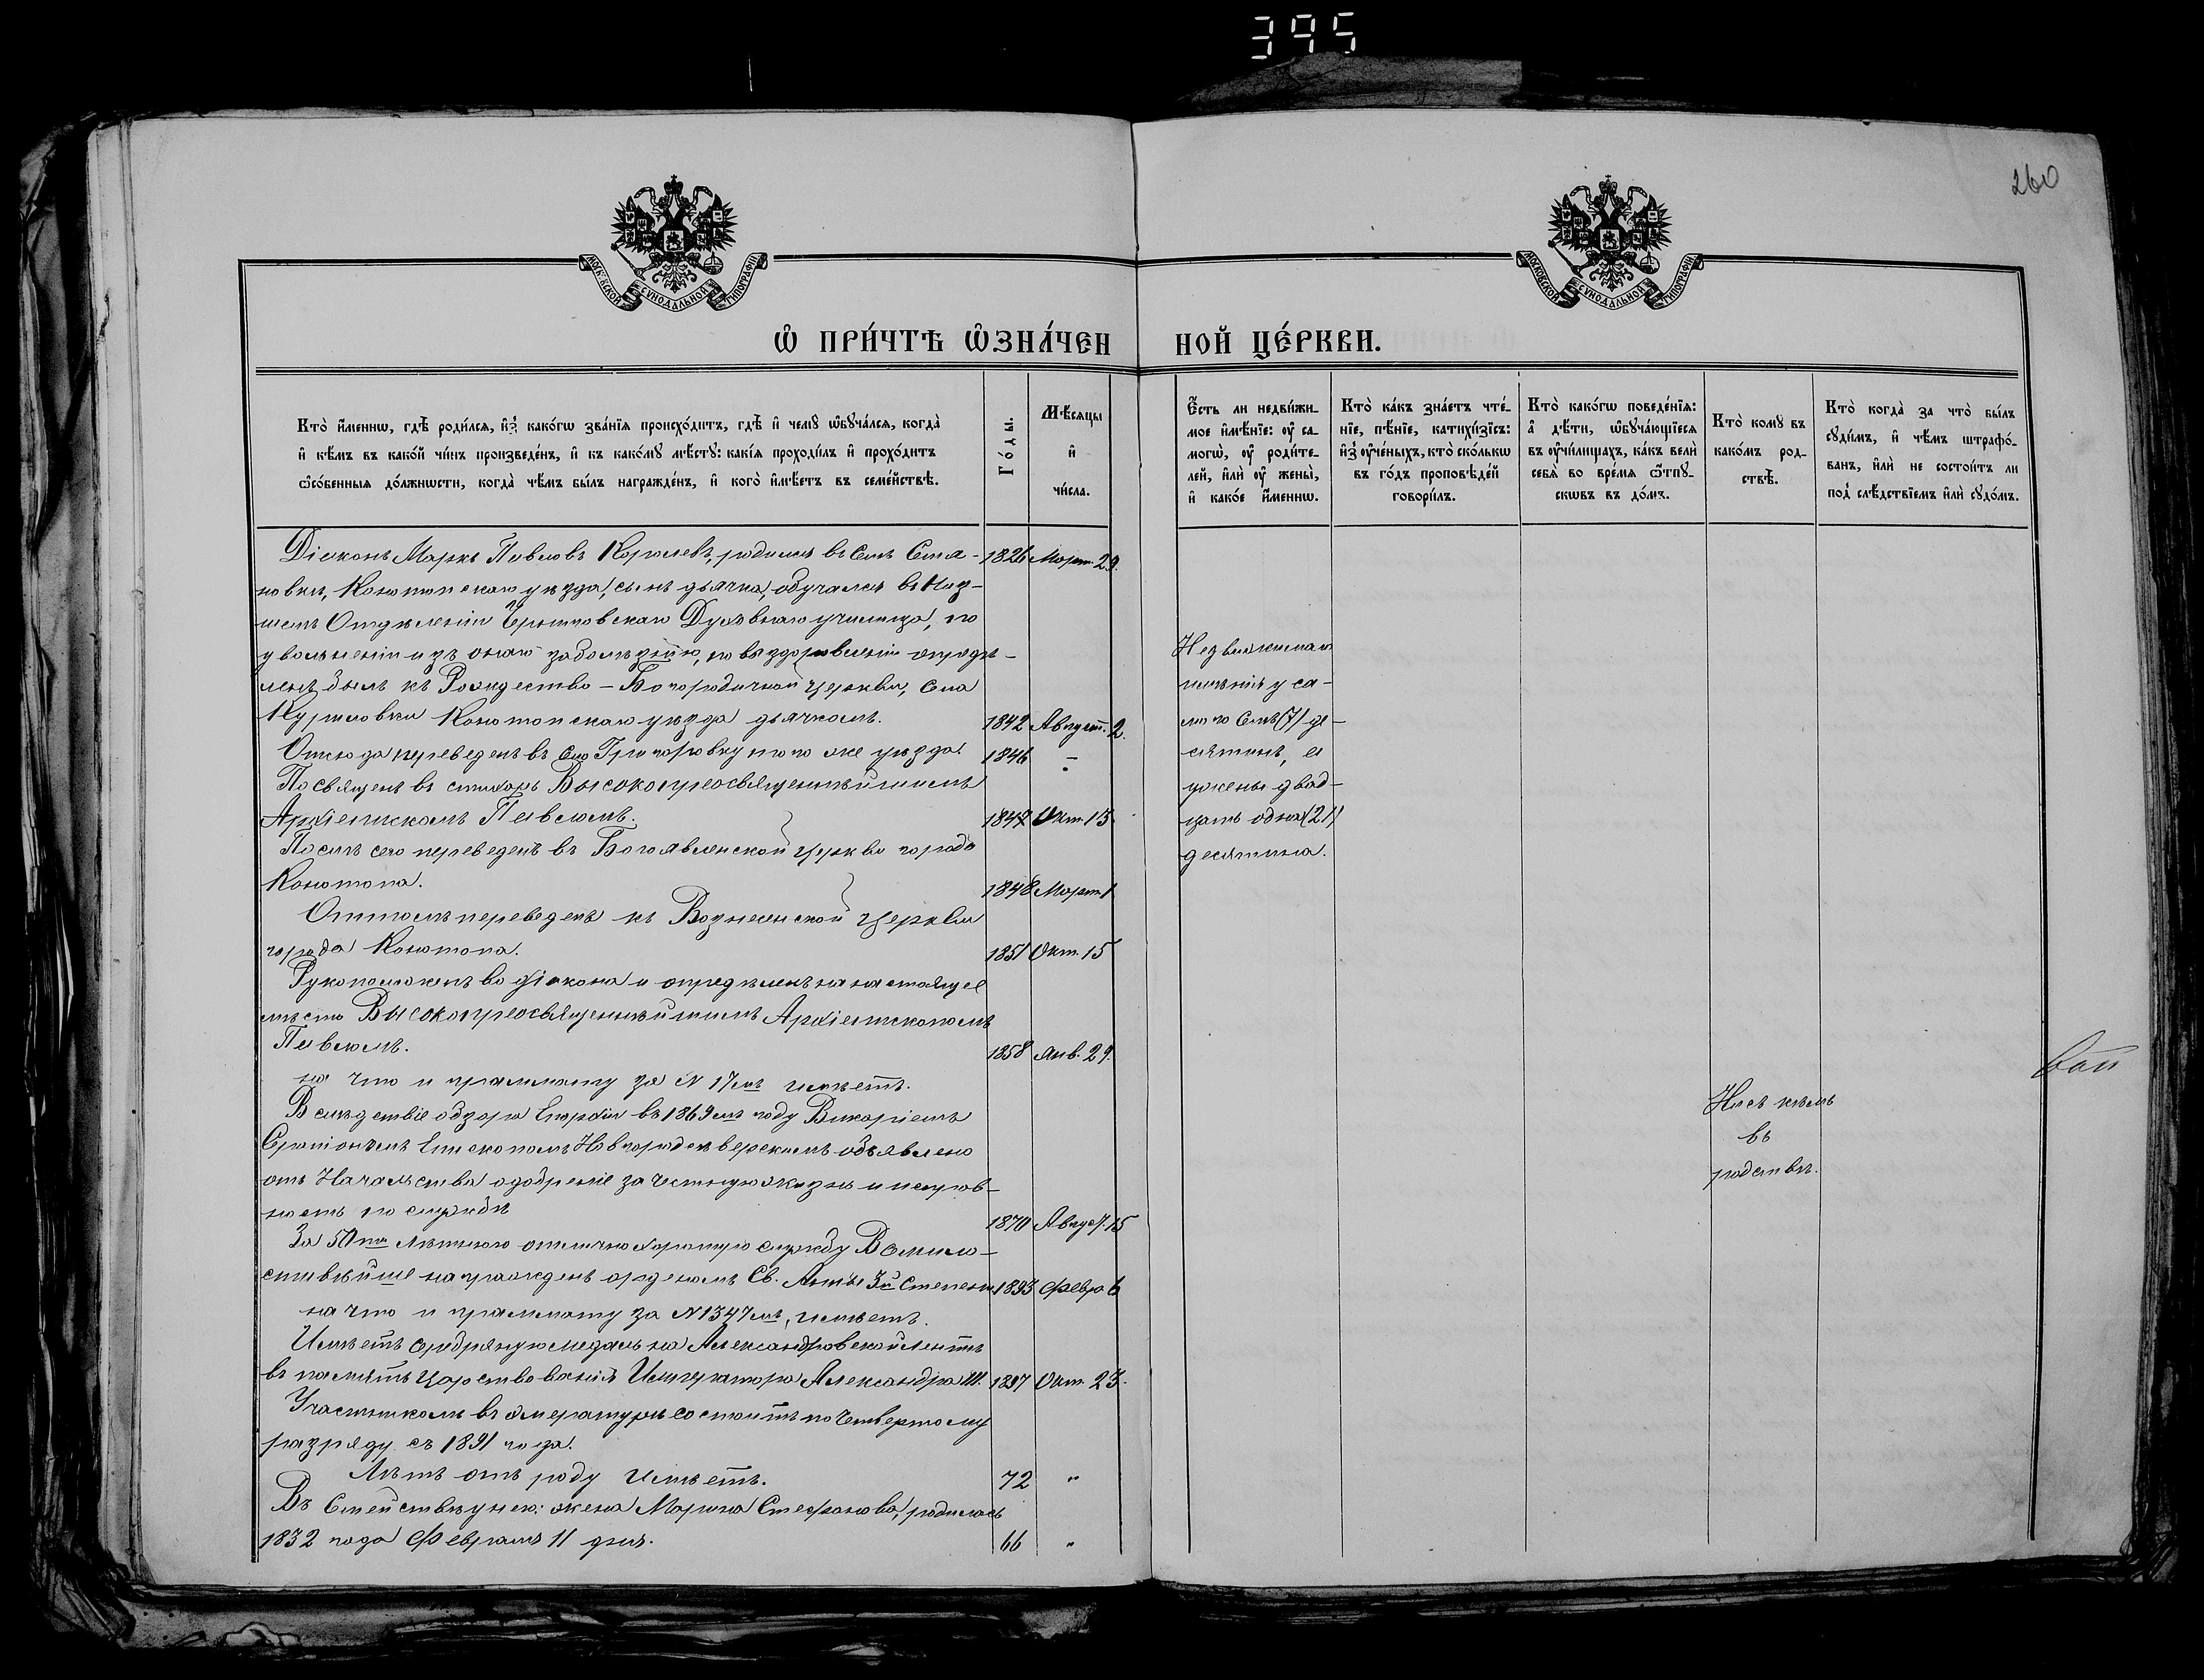 395
260
МОСКОВСКОЙ СУНОДАЛЬНОЙ ТИПОГРАФІИ
МОСКОВСКОЙ СУНОДАЛЬНОЙ ТИПОГРАФІИ
Ѡ ПРИ́ЧТѢ ѠЗНА́ЧЕН НОЙ ЦЕ́РКВИ.
Кто̀ и҆́меннѡ, гдѣ̀ роди́лся, и҆з̾ како́гѡ зва́нїѧ происхо́дитъ, гдѣ̀ и҆ чемꙋ̀ ѡ҆бꙋча́лся, когда̀
и҆ кѣ́мъ въ како́й чи́нъ произведе́нъ, и҆ къ како́мꙋ мѣ́стꙋ: какі́ѧ проходи́лъ и҆ прохо́дитъ
ѻ҆со́бенныѧ до́лжнѡсти, когда̀ чѣ́мъ бы́лъ награжде́нъ, и҆ кого̀ и҆мѣ́етъ въ семе́йствѣ.
Го́ды.
Мѣ́сѧцы
и҆
чи́сла.
Е҆́сть ли недви́жи-
мое и҆мѣ́нїе: ᲂу҆ са-
могѡ̀, ᲂу҆ роди́те-
лей, и҆лѝ ᲂу҆ жены̀,
и҆ како́е и҆́меннѡ.
Кто̀ ка́къ зна́етъ чте́-
нїе, пѣ́нїе, катихи́зїсъ:
и҆з̾ ᲂу҆че́ныхъ, кто̀ ско́лькѡ
въ го́дъ проповѣ́дей
говори́лъ.
Кто̀ како́гѡ поведе́нїѧ:
а҆ дѣ́ти, ѡ҆бꙋча́ющїесѧ
въ ᲂу҆чи́лищахъ, ка́къ велѝ
себѧ̀ во вре́мѧ ѿпꙋ-
скѡвъ въ до́мъ.
Кто̀ комꙋ̀ въ
како́мъ род-
ствѣ̀.
Кто̀ когда̀ за что̀ бы́лъ
сꙋди́мъ, и҆ чѣ́мъ штрафо́-
ванъ, и҆лѝ не состои́тъ ли
под̾ слѣ́дствїемъ и҆лѝ сꙋдо́мъ.
Діаконъ Маркъ Павловъ Королевъ, родился въ Селѣ Семя- 1826 Март. 29.
новки, Конотопскаго уѣзда, сынъ дьячка, обучался въ Низ-
шемъ Отдѣленіи Черниговскаго Духовнаго училища, по
увольненіи изъ онаго за болѣзнію, по выздоровленіи опредѣ-
ленъ былъ къ Рождество-Богородичной церкви, Села
Куриловки Конотопскаго уѣзда дьячкомъ. 1842 Август. 2.
Отсюда переведенъ въ Село Григоровку того же уѣзда. 1846 -
Посвященъ въ стихарь Высокопреосвященнѣйшимъ
Архіепископомъ Павломъ. 1847 Окт. 13.
Послѣ сего переведенъ въ Богоявленской церкви города
Конотопа. 1848 Март. 1
Оттолѣ переведенъ къ Вознесенской церкви
города Конотопа. 1851 Окт. 15
Рукоположенъ во діакона и опредѣленъ на настоящее
мѣсто Высокопреосвященнѣйшимъ Архіепископомъ
Павломъ. 1858 Янв. 29.
на что и граммоту за N 17мъ имѣетъ.
Вслѣдствіе обзора Епархіи въ 1869мъ году Викаріемъ
Серапіономъ Епископомъ Новгородсѣверскимъ объявлено
отъ Начальства одобреніе за честную жизнь и исправ-
ность по службѣ 1870 Август. 15
За 50ти лѣтнюю отлично хорошую службу Всемило-
стивѣйше награжденъ орденомъ Св. Анны 3й Степени 1893 Февр. 6
на что и граммоту за N 1347мъ, имѣетъ.
Имѣетъ серебряную медаль на Александровской лентѣ
въ память Царствованія Императора Александра III. 1897 Окт. 23.
Участникомъ въ эмеритурѣ состоитъ по Четвертому
разряду съ 1891 года.
Лѣтъ отъ роду имѣетъ. 72 "
Въ Семействѣ у него: жена Марина Стефанова, родилась
1832 года Февраля 11 дня. 66 "
Недвижимаго
имѣнія у са-
мого Семь (7) де-
сятинъ, а
у жены двад-
цать одна (21)
десятина.
Ни съ кѣмъ
въ
родствѣ.